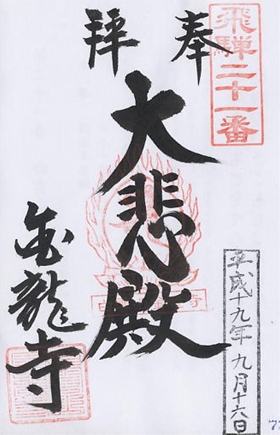 飛騨二十一番
奉拝
大悲殿
平成十九年九月十六日
金龍寺